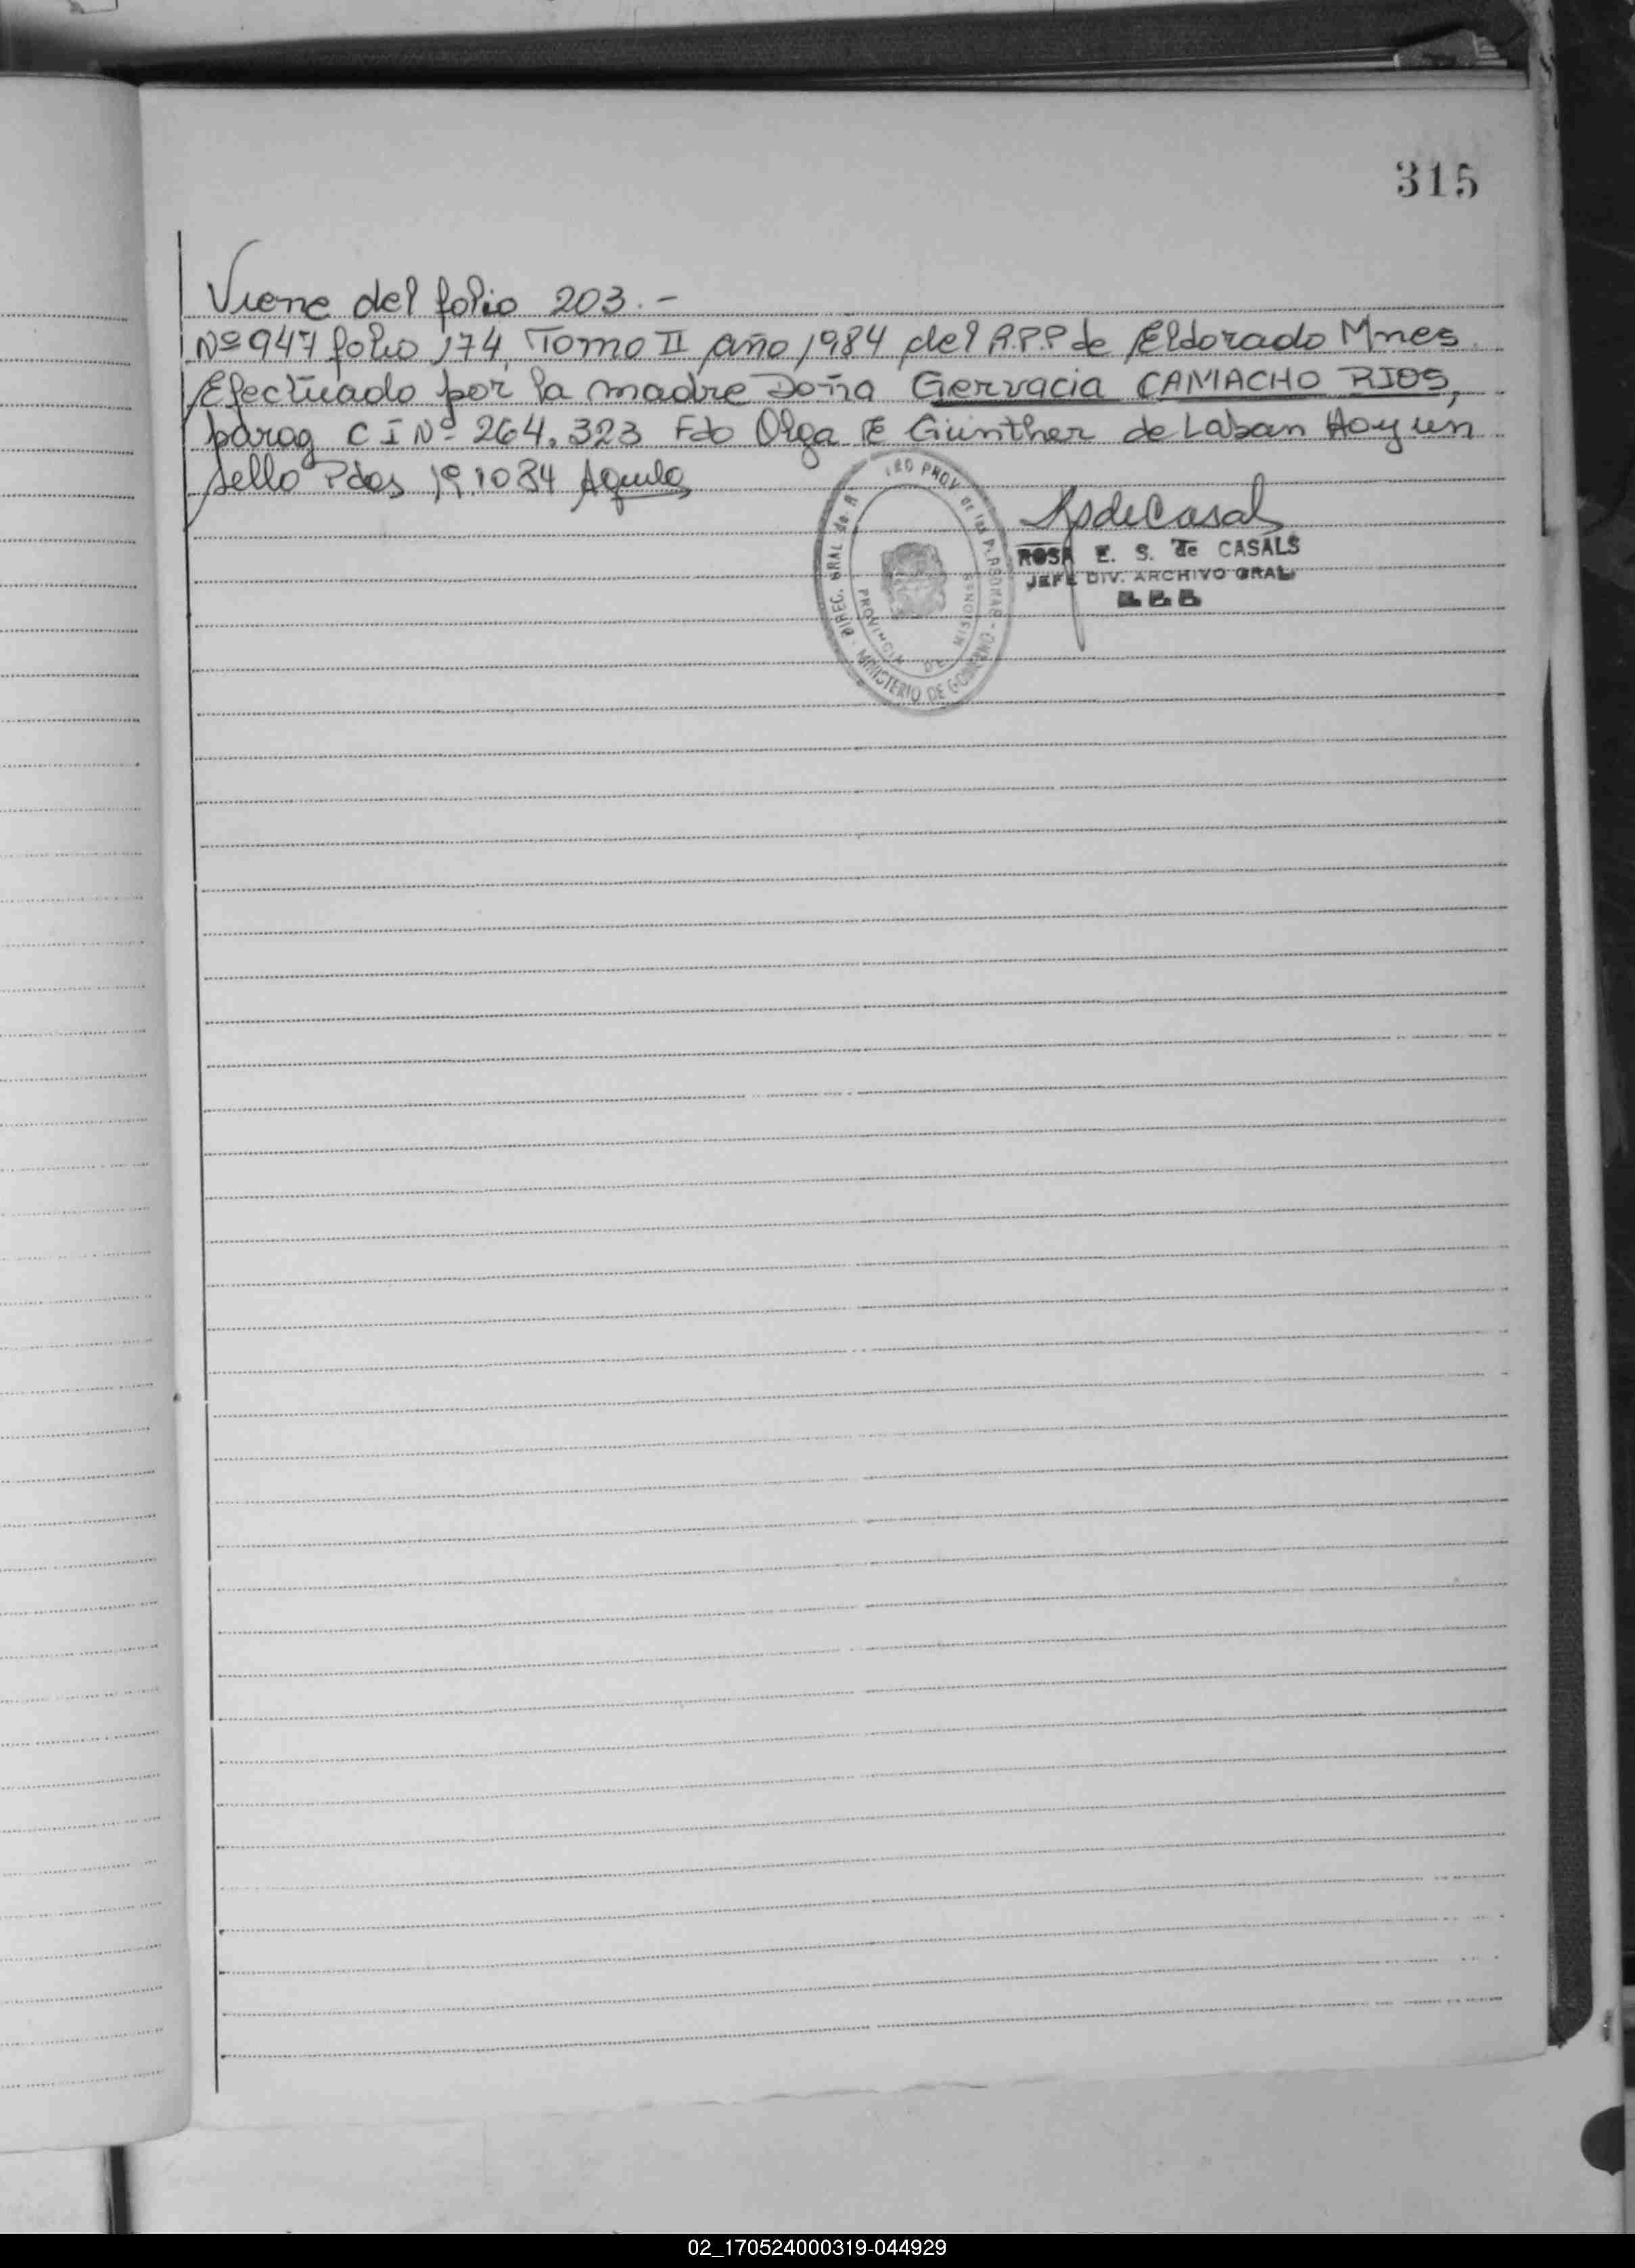 315
Viene del folio 203.-
Nº 947 folio 174, Tomo II año 1984 del R.P.P de Eldorado Mnes.
Efectuado por la madre Doña Gervacia CAMACHO RIOS,
parag C I Nº 264.323 Fdo Olga E Günther de Laban Hay un
sello Pdas 19.10 84 Aquila
ROSA E. S. de CASALS
JEFE DIV. ARCHIVO GRAL.
DIREC. GRAL de PROV de las PERSONAS - MINISTERIO DE GOBIERNO
PROVINCIA DE MISIONES
02_170524000319-044929